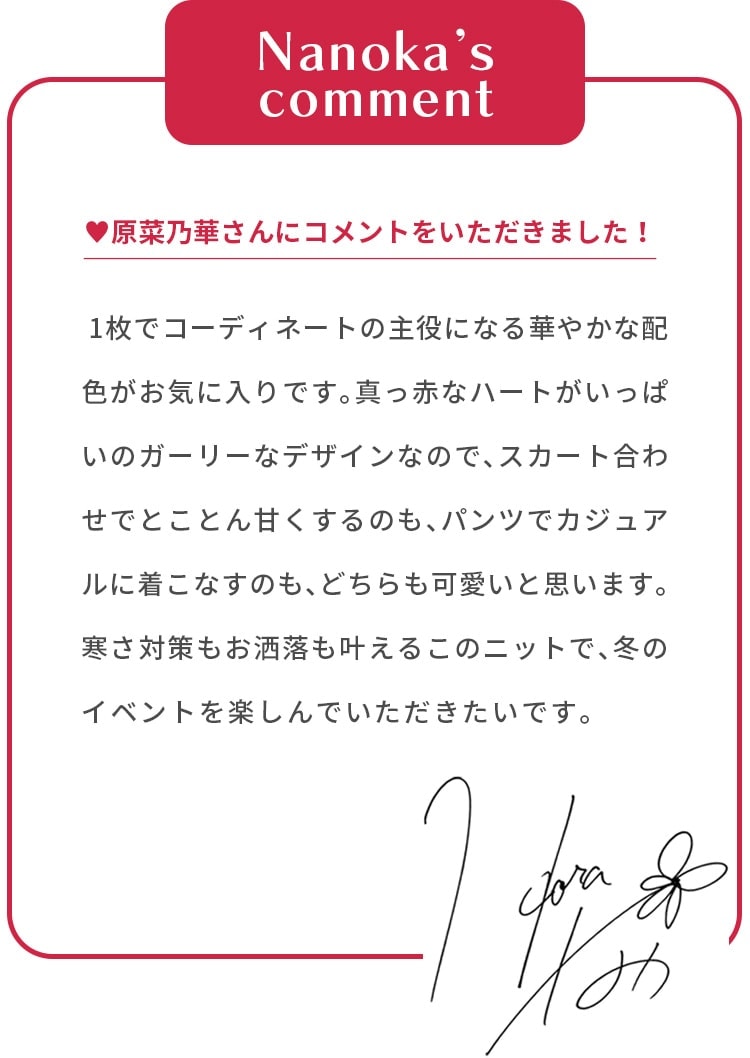 Nanoka’s
comment
♥原菜乃華さんにコメントをいただきました！
1枚でコーディネートの主役になる華やかな配
色がお気に入りです。真っ赤なハートがいっぱ
いのガーリーなデザインなので、スカート合わ
せでとことん甘くするのも、パンツでカジュア
ルに着こなすのも、どちらも可愛いと思います。
寒さ対策もお洒落も叶えるこのニットで、冬の
イベントを楽しんでいただきたいです。